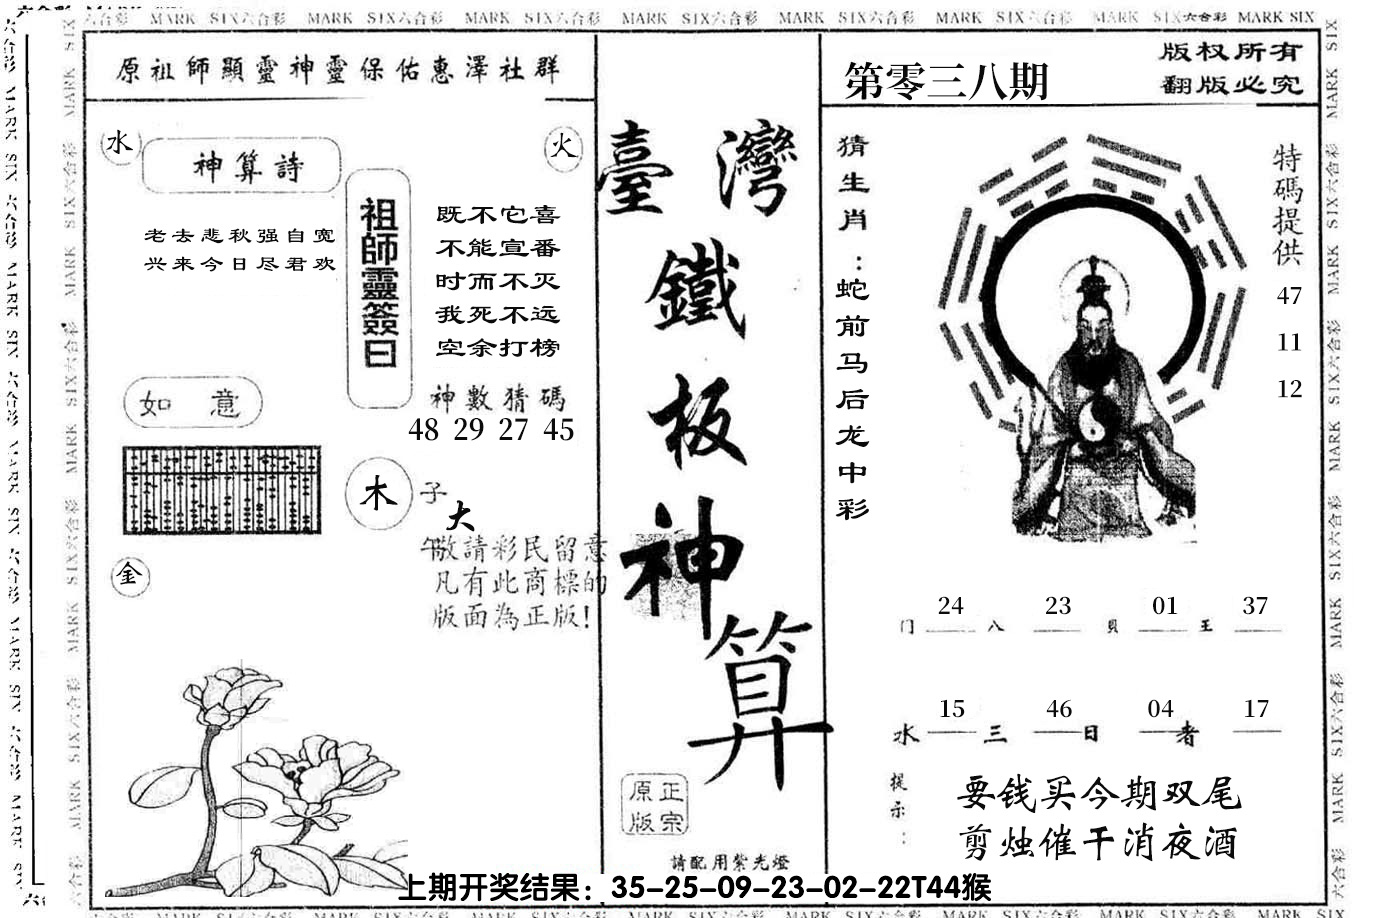 MARK SIX六合彩 MARK SIX六合彩 MARK SIX六合彩 MARK SIX六合彩 MARK SIX六合彩 MARK SIX六合彩 MARK SIX六合彩 MARK SIX
原祖師顯靈神靈保佑惠澤社群
水
神算詩
火
老去悲秋强自宽
兴来今日尽君欢
祖師靈簽曰
既不它喜
不能宣番
时而不灭
我死不远
空余打榜
神數猜碼
48 29 27 45
如意
木
子
大
午
敬請彩民留意
凡有此商標的
版面為正版!
金
臺灣
鐵
板
神
算
正宗
原版
請配用紫光燈
第零三八期
版权所有
翻版必究
猜生肖:蛇前马后龙中彩
特碼提供
47
11
12
24 23 01 37
门 八 貝 王
15 46 04 17
水 三 日 者
提示:
要钱买今期双尾
剪烛催干消夜酒
上期开奖结果：35-25-09-23-02-22T44猴